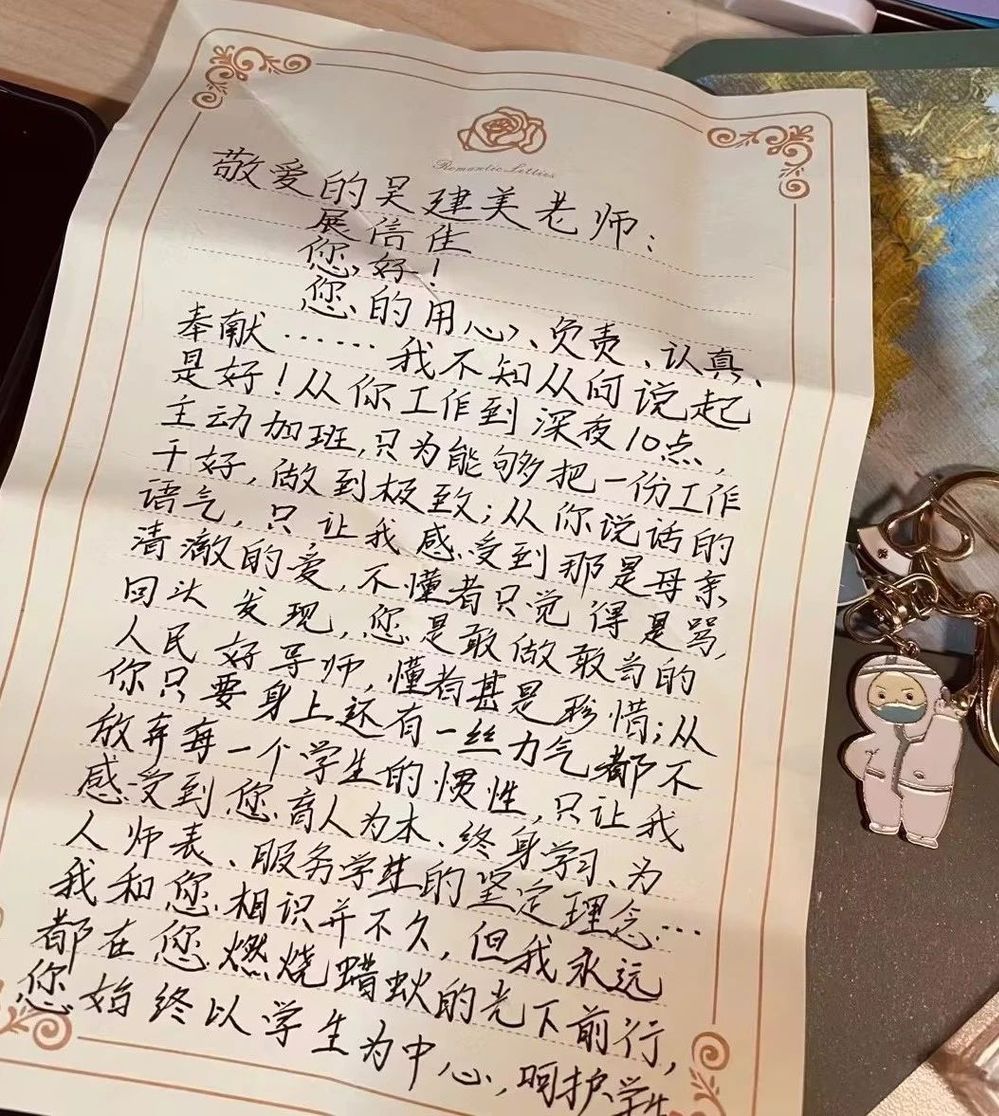 Romantic Letters
敬爱的吴建美老师：
展信佳
您好！
您的用心、负责、认真、
奉献……我不知从何说起
是好！从你工作到深夜10点，
主动加班，只为能够把一份工作
干好，做到极致；从你说话的
语气，只让我感受到那是母亲
清澈的爱，不懂者只觉得是骂，
回头发现，您是敢做敢当的
人民好导师，懂者甚是珍惜；从
你只要身上还有一丝力气都不
放弃每一个学生的惯性，只让我
感受到您育人为本、终身学习、为
人师表、服务学生的坚定理念…
我和您相识并不久，但我永远
都在您燃烧蜡烛的光下前行，
您始终以学生为中心，呵护学生